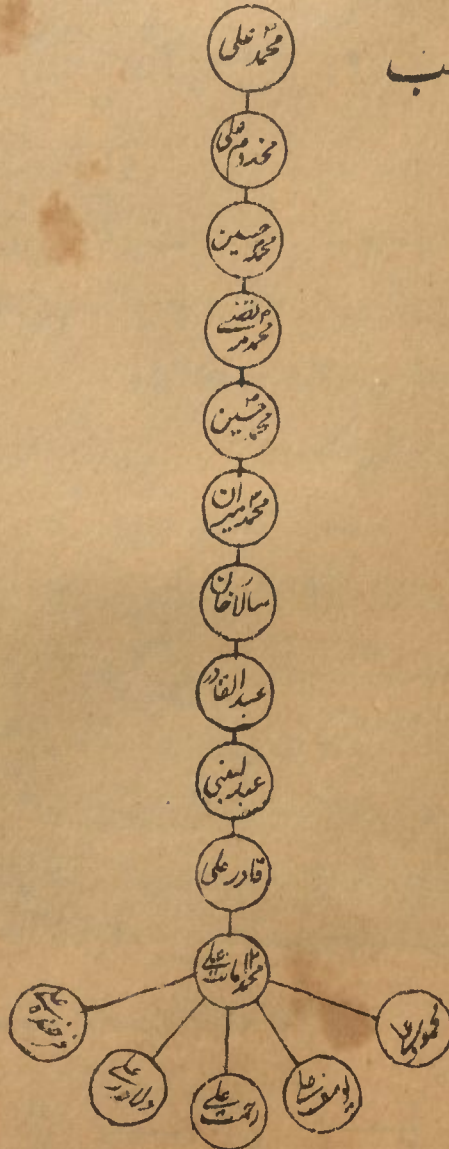 محمد علی
مخدوم علی
محمد حسین
محمد مرتضے
محمد حسین
محمد میران
سالار خان
عبد القادر
عبد النبی
قادر علی
محمد امانت علی
محمود علی
یوسف علی
رحمت علی
دلاور علی
علی